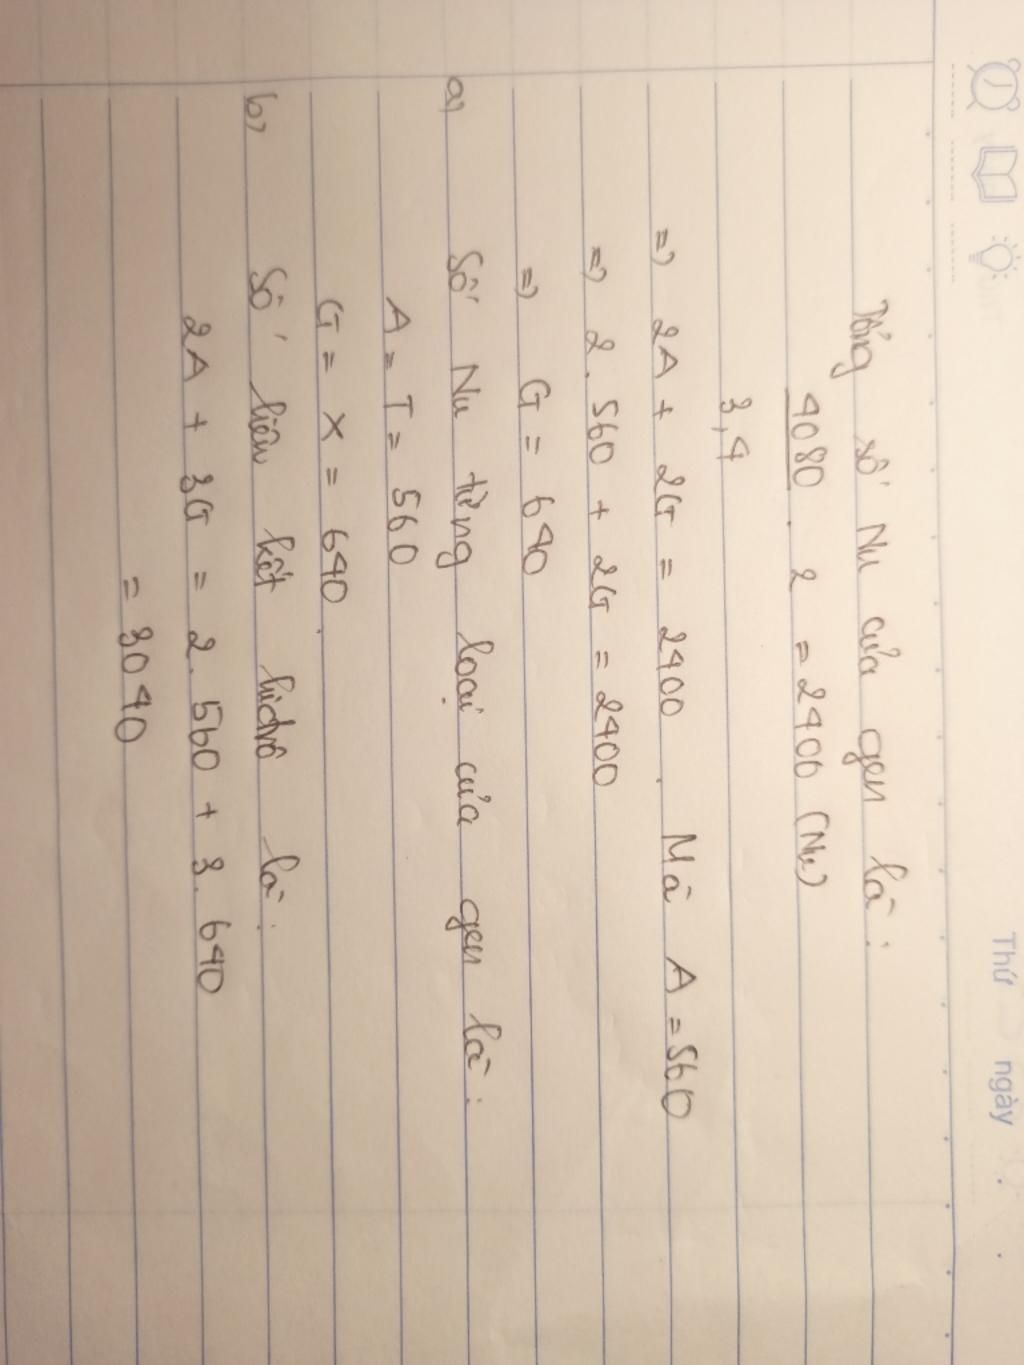 Thứ ngày
Tổng số Nu của gen là:
4080 . 2 = 2400 (Nu)
3,4
=> 2A + 2G = 2400 . Mà A = 560
=> 2. 560 + 2G = 2400
=> G = 640
a) Số Nu từng loại của gen là:
A = T = 560
G = X = 640.
b) Số liên kết hiđrô là:
2A + 3G = 2. 560 + 3. 640
= 3040